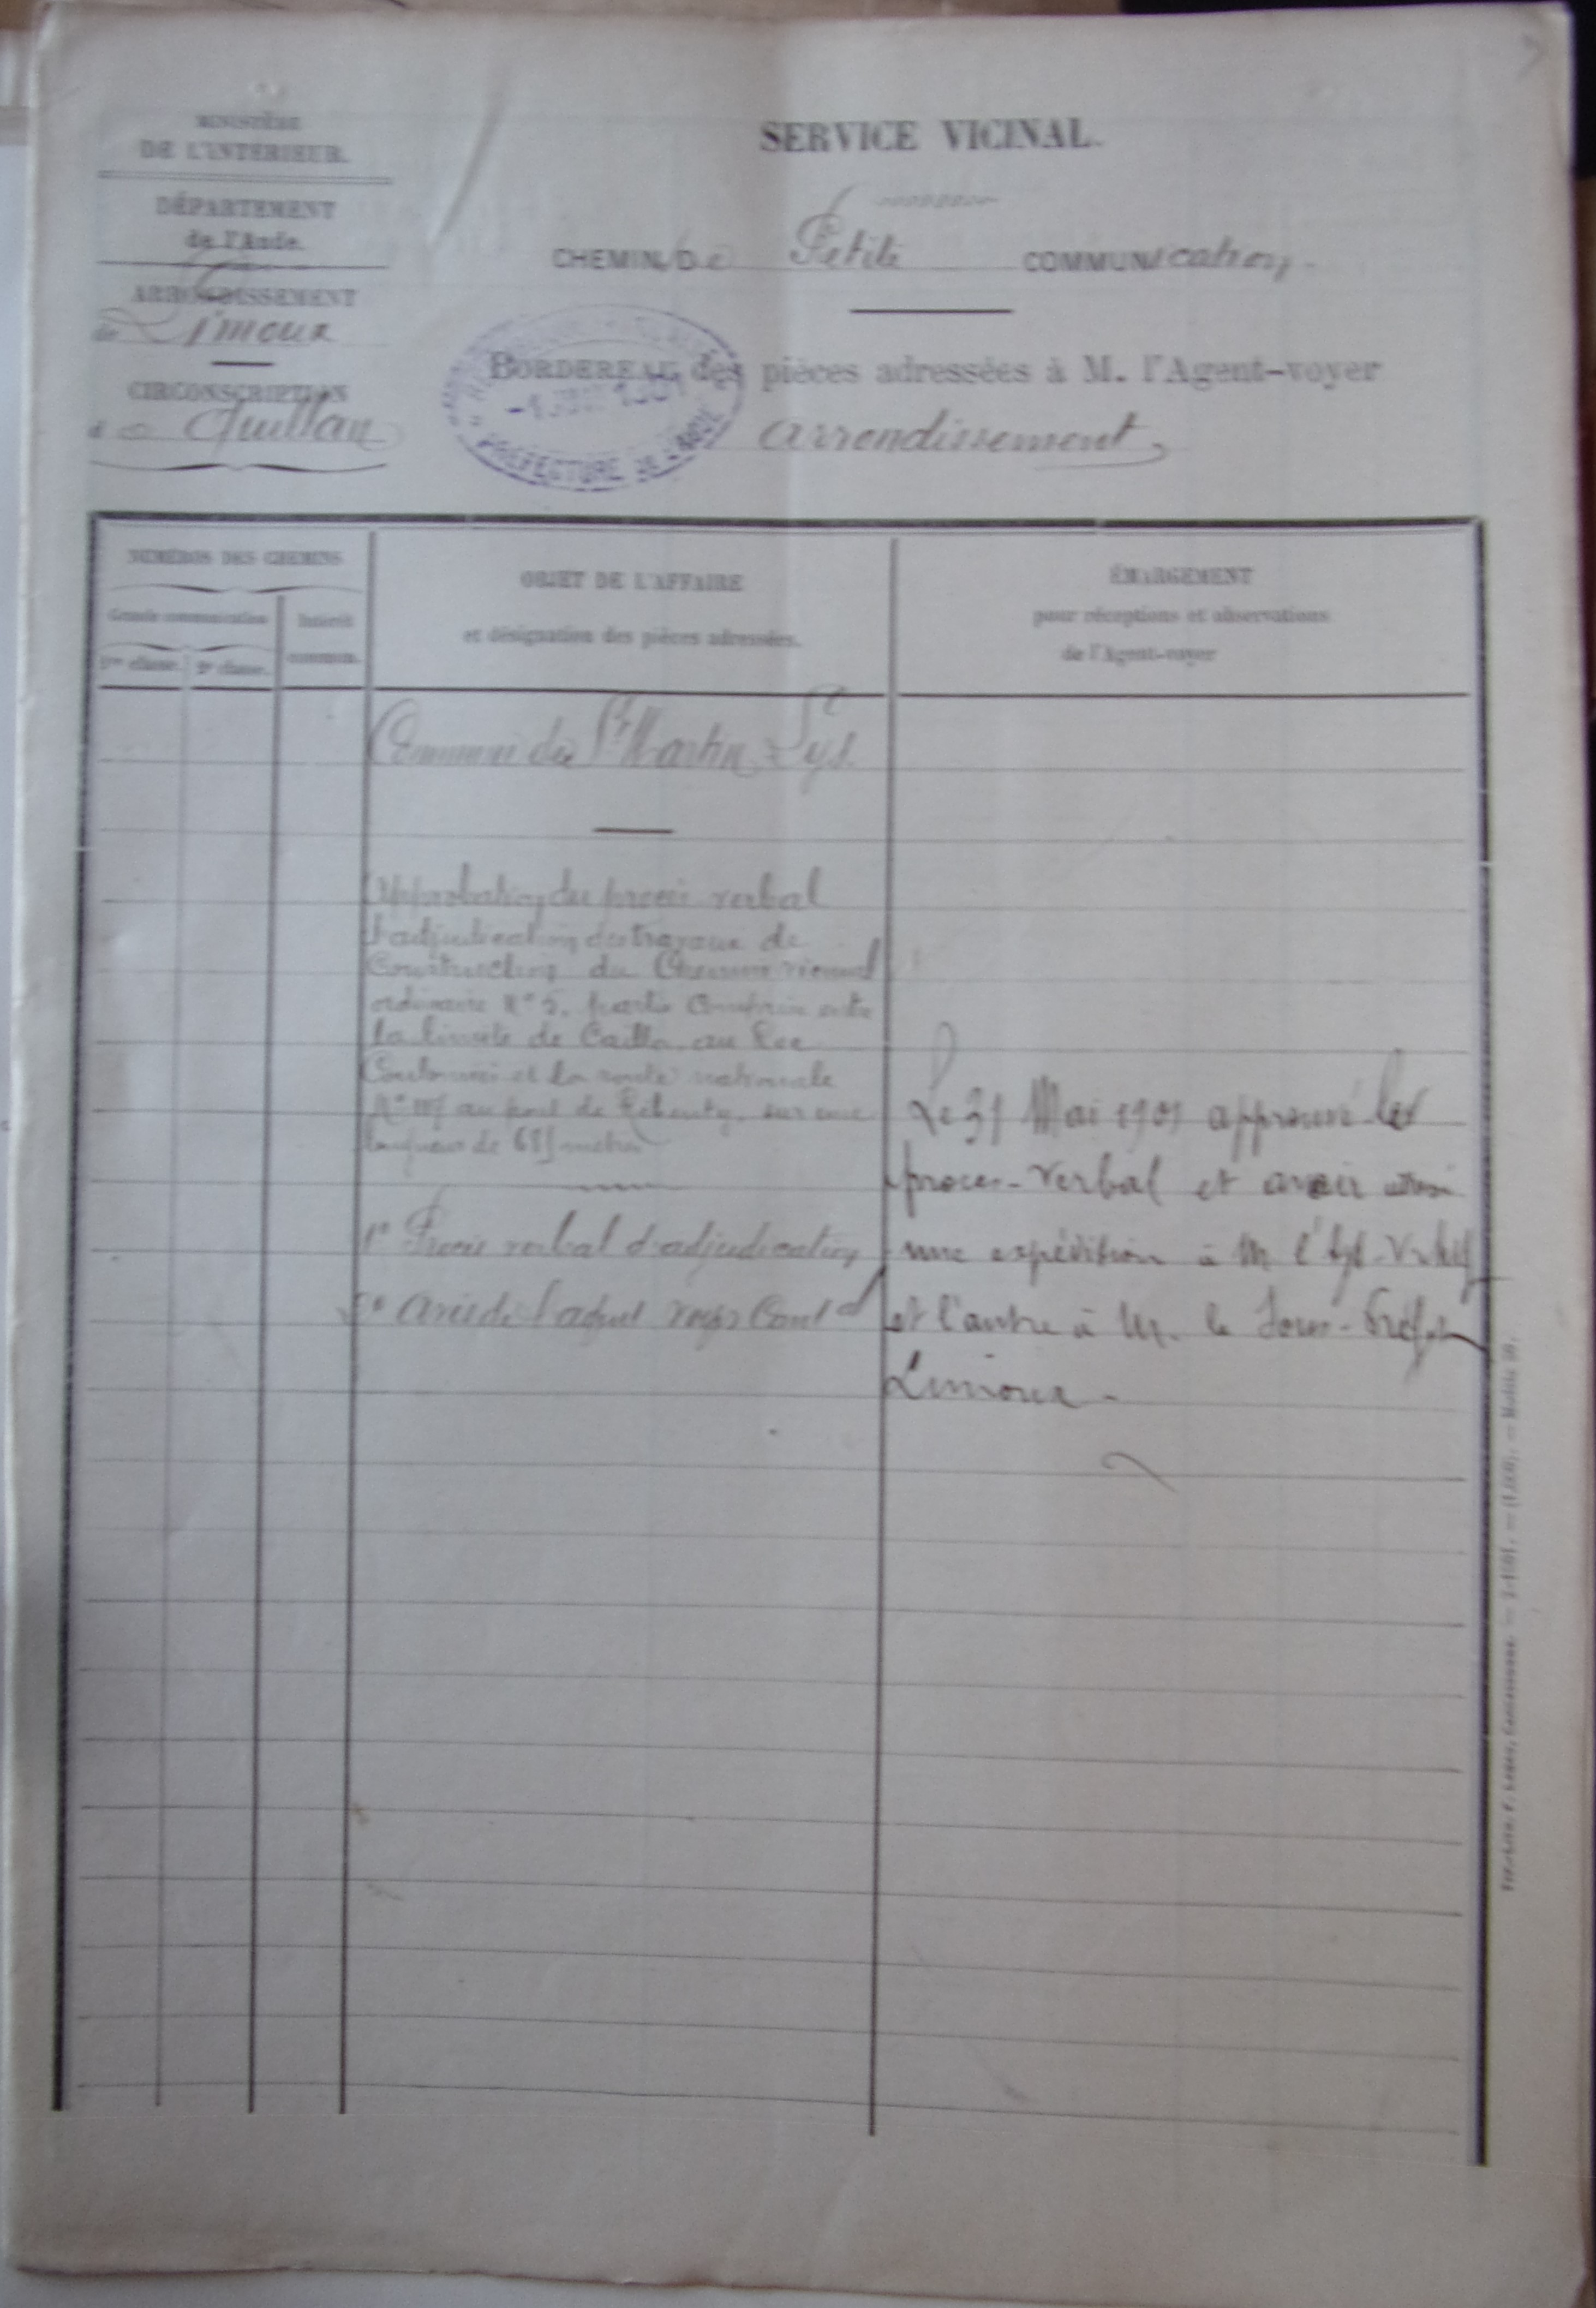 MINISTÈRE
DE L'INTÉRIEUR.
DÉPARTEMENT
de l'Aude.
ARRONDISSEMENT
de Limoux
CIRCONSCRIPTION
de Quillan
SERVICE VICINAL.
CHEMIN DE Petite COMMUNication,
BORDEREAU des pièces adressées à M. l'Agent-voyer
arrondissement,
PRÉFECTURE DE L'AUDE
NUMÉROS DES CHEMINS
Grande communication
Intérêt
commun.
1re classe.
2e classe.
OBJET DE L'AFFAIRE
et désignation des pièces adressées.
ÉMARGEMENT
pour réceptions et observations
de l'Agent-voyer
Commune de St Martin Lys
Approbation du procès verbal
d'adjudication des travaux de
Construction du Chemin vicinal
ordinaire N° 5, partie comprise entre
la limite de Cailla au
et la route nationale
N° 117 au pont de Rebenty, sur une
longueur de mètres
1° Procès verbal d'adjudication
2° avis de l'agent voyer Cant al
Le 31 Mai 1901 approuvé les
proces-verbal et avoir
une expédition à M l'Agt-V.
et l'autre à M. le Sous-Préfet
Limoux -